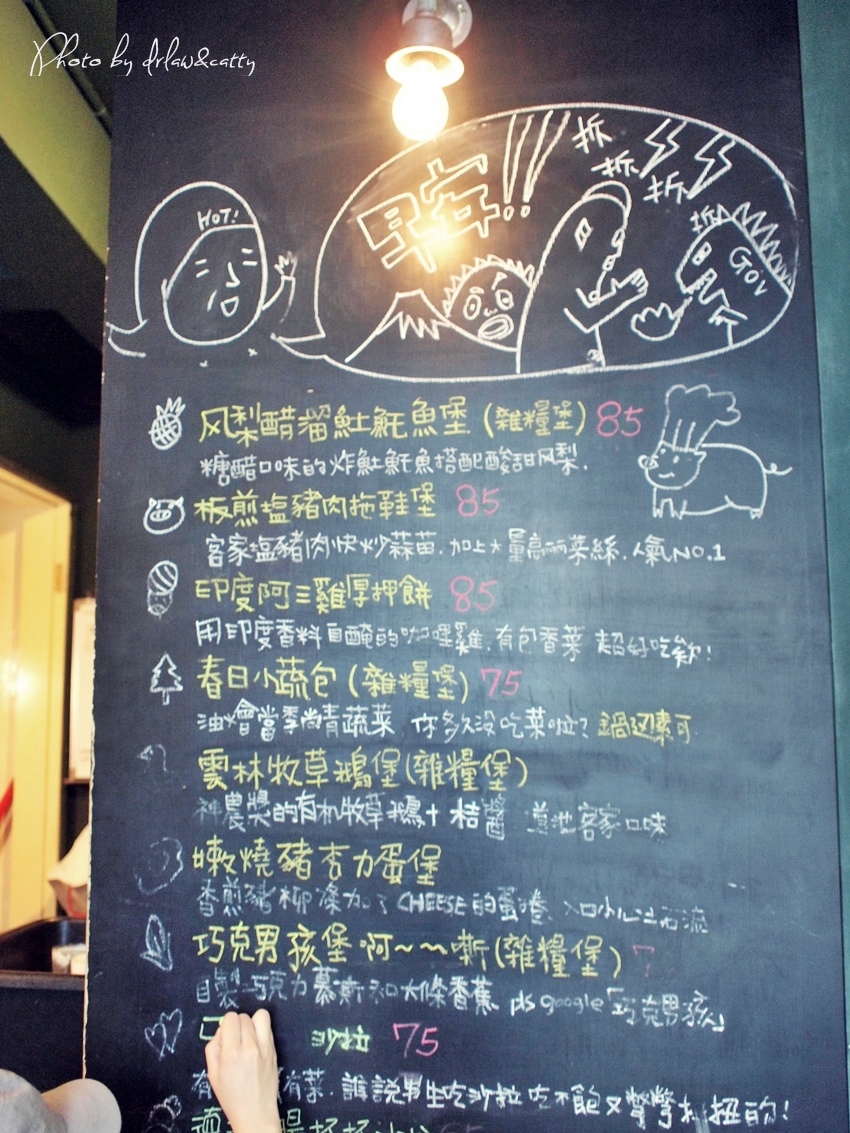 Photo by drlaw&catty
HOT!
早安!!
拆
拆
拆
拆
Gov
风梨醋溜魠魠魚堡(雜糧堡)85
糖醋口味的炸魠魠魚搭配酸甜风梨.
板煎塩豬肉拖鞋堡 85
客家塩豬肉快炒蒜苗.加上大量高麗菜絲.人氣NO.1
印度阿三雞厚押餅 85
用印度香料自醃的咖哩雞.有包香菜 超好吃欸!
春日小蔬包(雜糧堡)75
油燴當季尚青蔬菜 你多久沒吃菜啦? 鍋边素可
雲林牧草鵝堡(雜糧堡)
神農獎的有机牧草鵝+桔醬 道地客家口味
嫩燒豬杏力蛋堡
香煎豬柳條加了CHEESE的蛋捲
巧克男孩堡 啊~~嘶(雜糧堡)7
自製巧克力慕斯和大條香蕉 pls google「巧克男孩」
沙拉 75
有菜.誰說男生吃沙拉吃不飽又彆彆扭扭的!